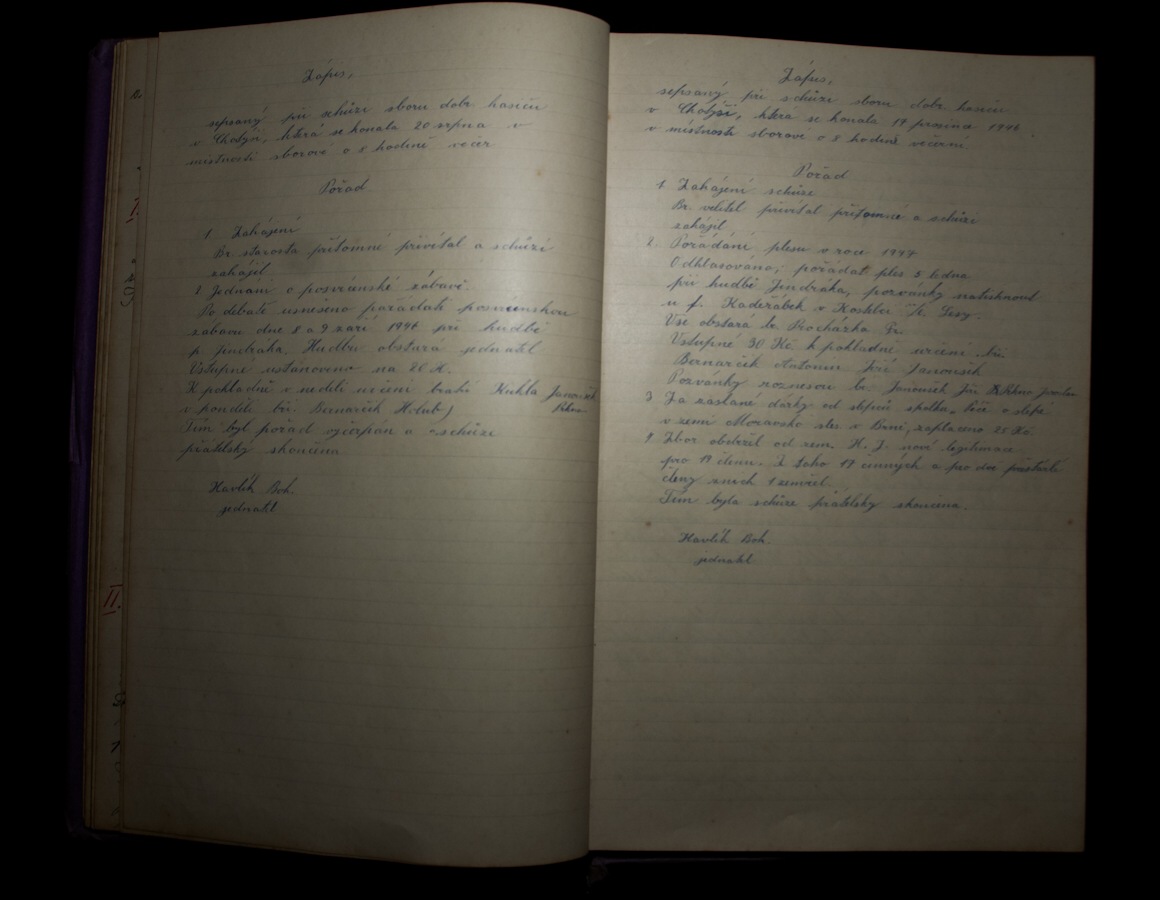 Zápis,
sepsaný při schůzi sboru dobr. hasičů
v Chotýši, která se konala 20 srpna v
místnosti sborové o 8 hodině večer
Pořad
1. Zahájení
Br. starosta přítomné přivítal a schůzi
zahájil
2. Jednání o posvícenské zábavě
Po debatě usneseno pořádati posvícenskou
zábavu dne 8 a 9 září 1946 při hudbě
p. Jindráka. Hudbu obstará jednatel
Vstupné ustanoveno na 20 K.
K pokladně v neděli určeni bratři Kukla Janoušek
v pondělí bři. Bernarčík Holub)
Tím byl pořad vyčerpán a schůze
přátelsky skončena
Havlík Boh.
jednatel
Zápis,
sepsaný při schůzi sboru dobr. hasičů
v Chotýši, která se konala 14 prosince 1946
v místnosti sborové o 8 hodině večerní
Pořad
1. Zahájení schůze
Br. velitel přivítal přítomné a schůzi
zahájil
2. Pořádání plesu v roce 1947
Odhlasováno, pořádat ples 5 ledna
při hudbě Jindráka, pozvánky natisknout
u f. Kadeřábek v Kostelci n. Lesy.
Vše obstará br. Procházka Fr.
Vstupné 30 Kč k pokladně určeni bři.
Bernarčík Antonín Jiří Janoušek
Pozvánky roznesou br. Janoušek Jiří Jaroslav
3 Za zaslané dárky od slepců spolku „Péče o slepé
v zemi Moravsko slez v Brně, zaplaceno 25 Kč.
4. Sbor obdržel od zem. H. J. nové legitimace
pro 19 členů. Z toho 17 činných a pro dva přestárlé
členy z nich 1 zemřel.
Tím byla schůze přátelsky skončena.
Havlík Boh.
jednatel
II.